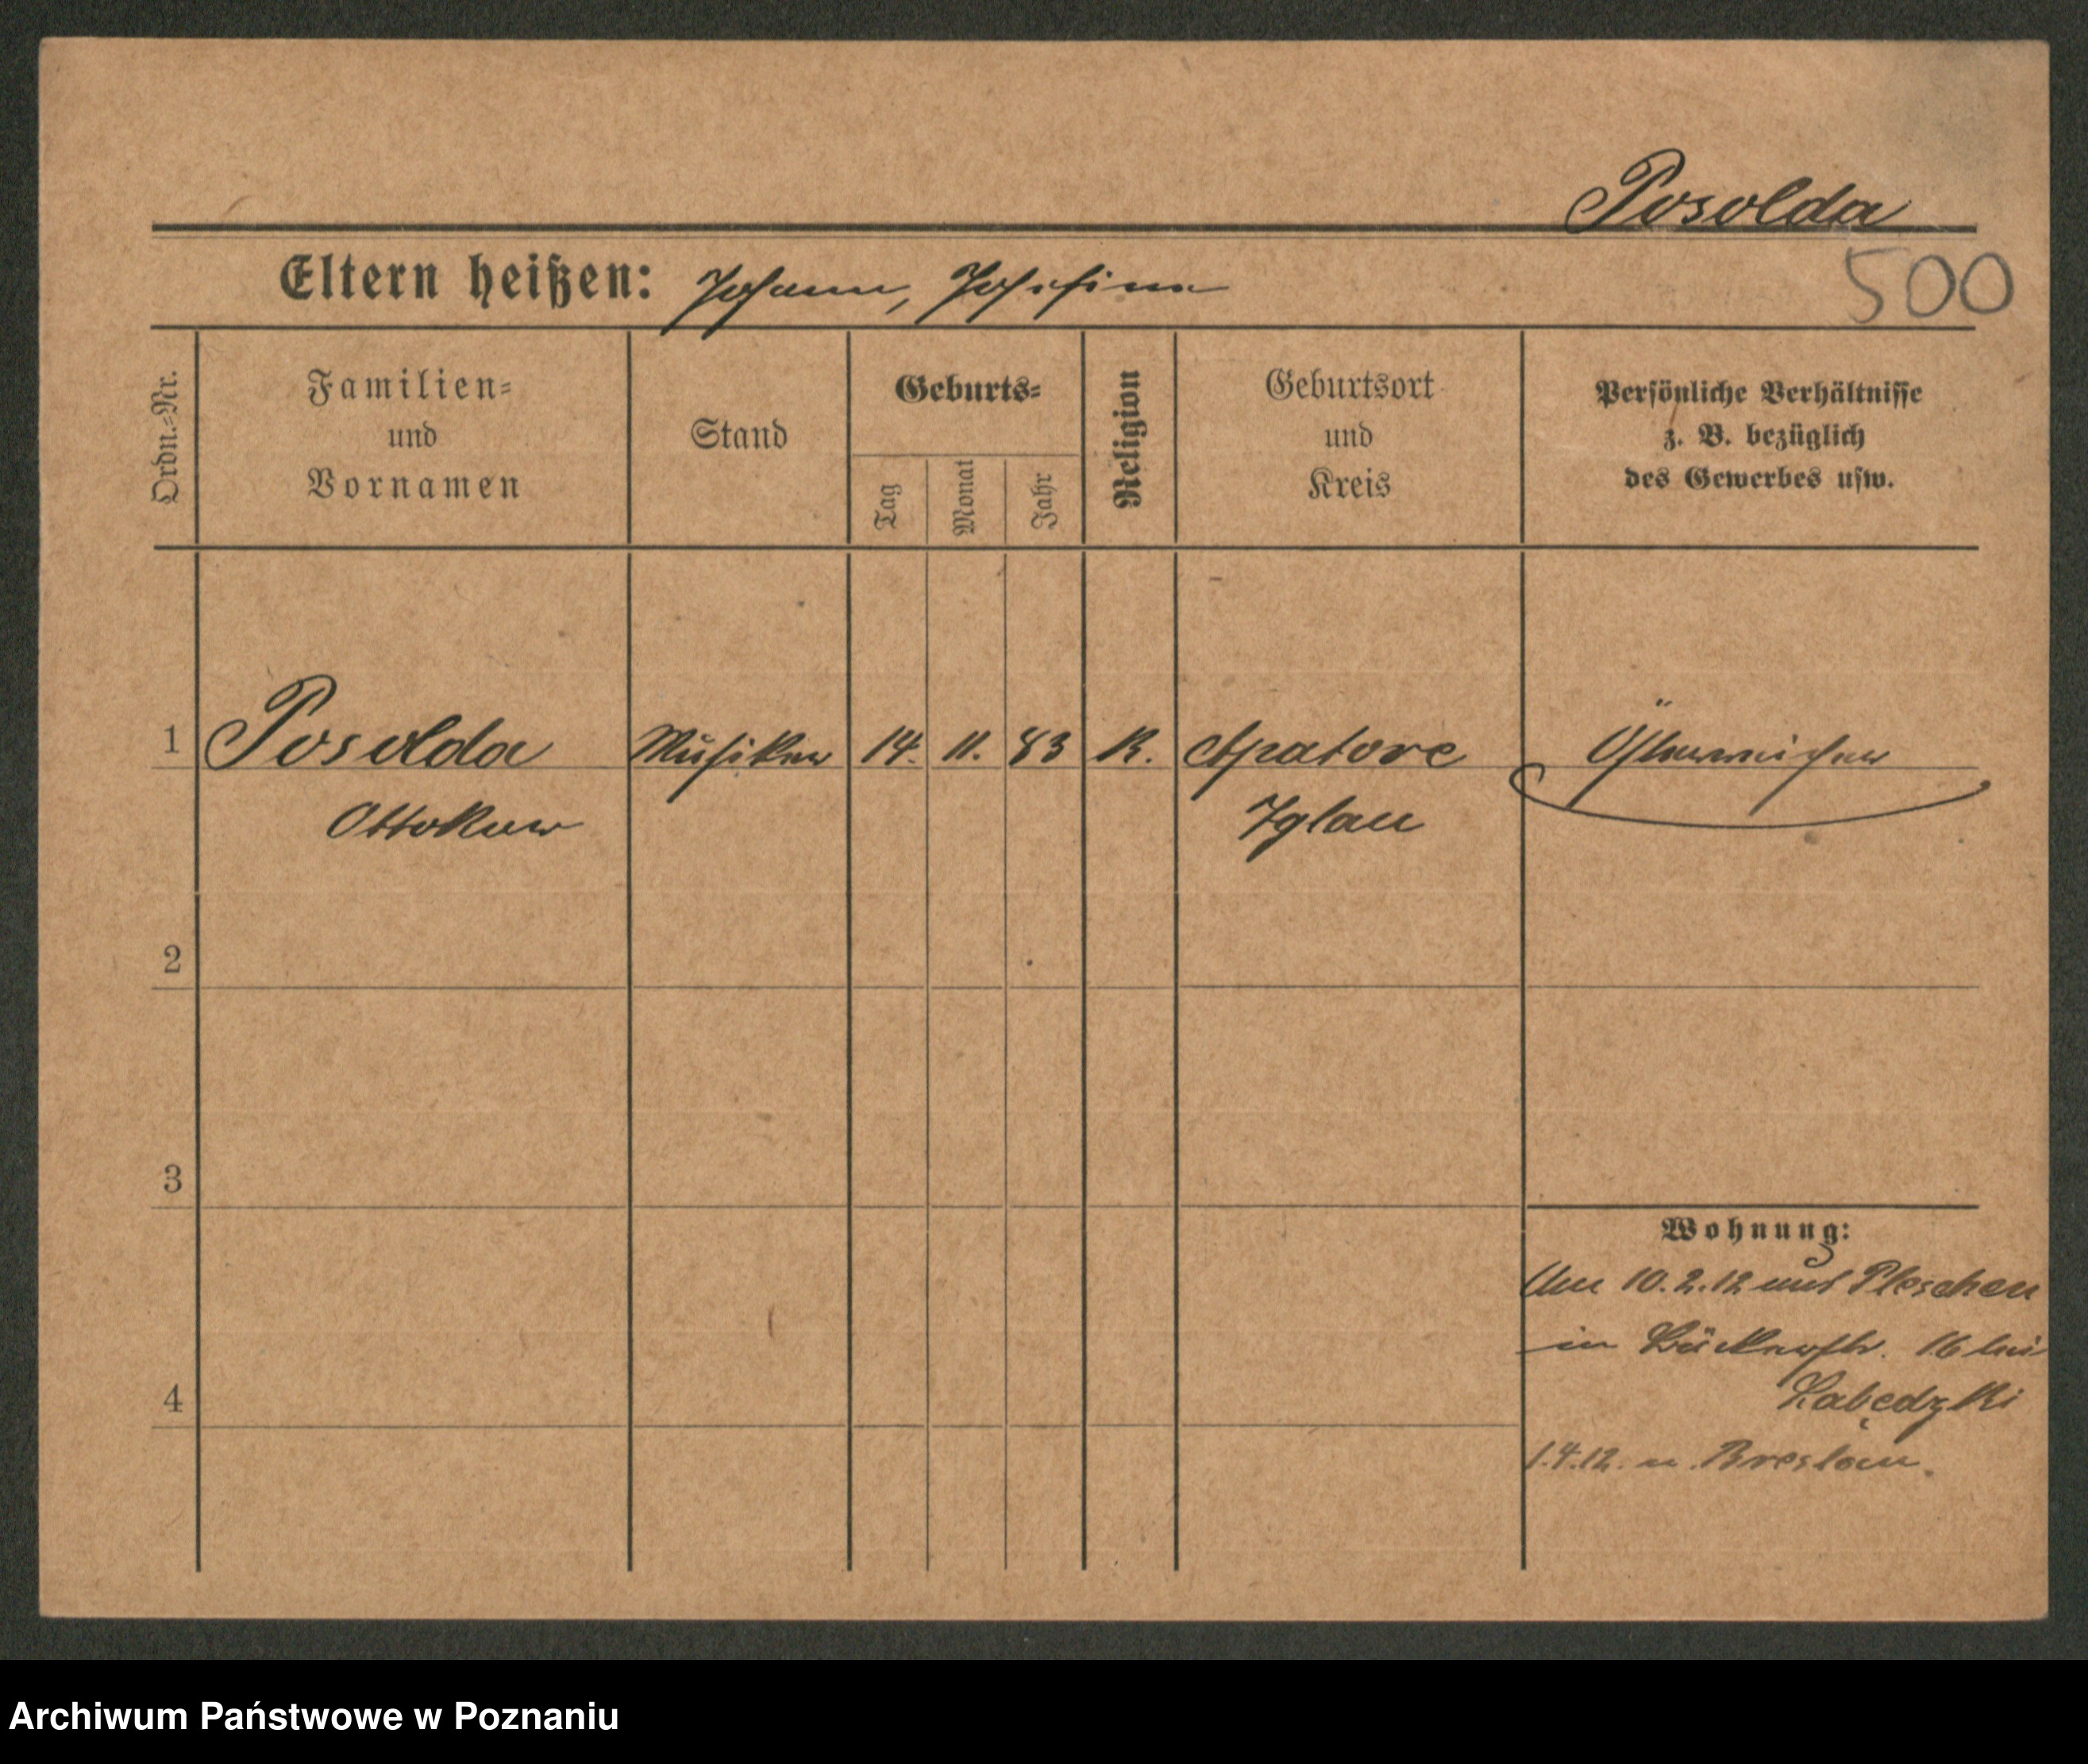 Posolda
Eltern heißen: Johann, Josefine
500
Ordn.=Nr.
Familien=
und
Vornamen
Stand
Geburts=
Tag
Monat
Jahr
Religion
Geburtsort
und
Kreis
Persönliche Verhältnisse
z. B. bezüglich
des Gewerbes usw.
1 Posolda Musiker 14. 11. 83 K. Österreicher
Ottokar Iglau
2
3
4
Wohnung:
10.2.12 aus Pleschen
in Bäckerstr. 16 bei
Łabędzki
1.4.12. n. Breslau.